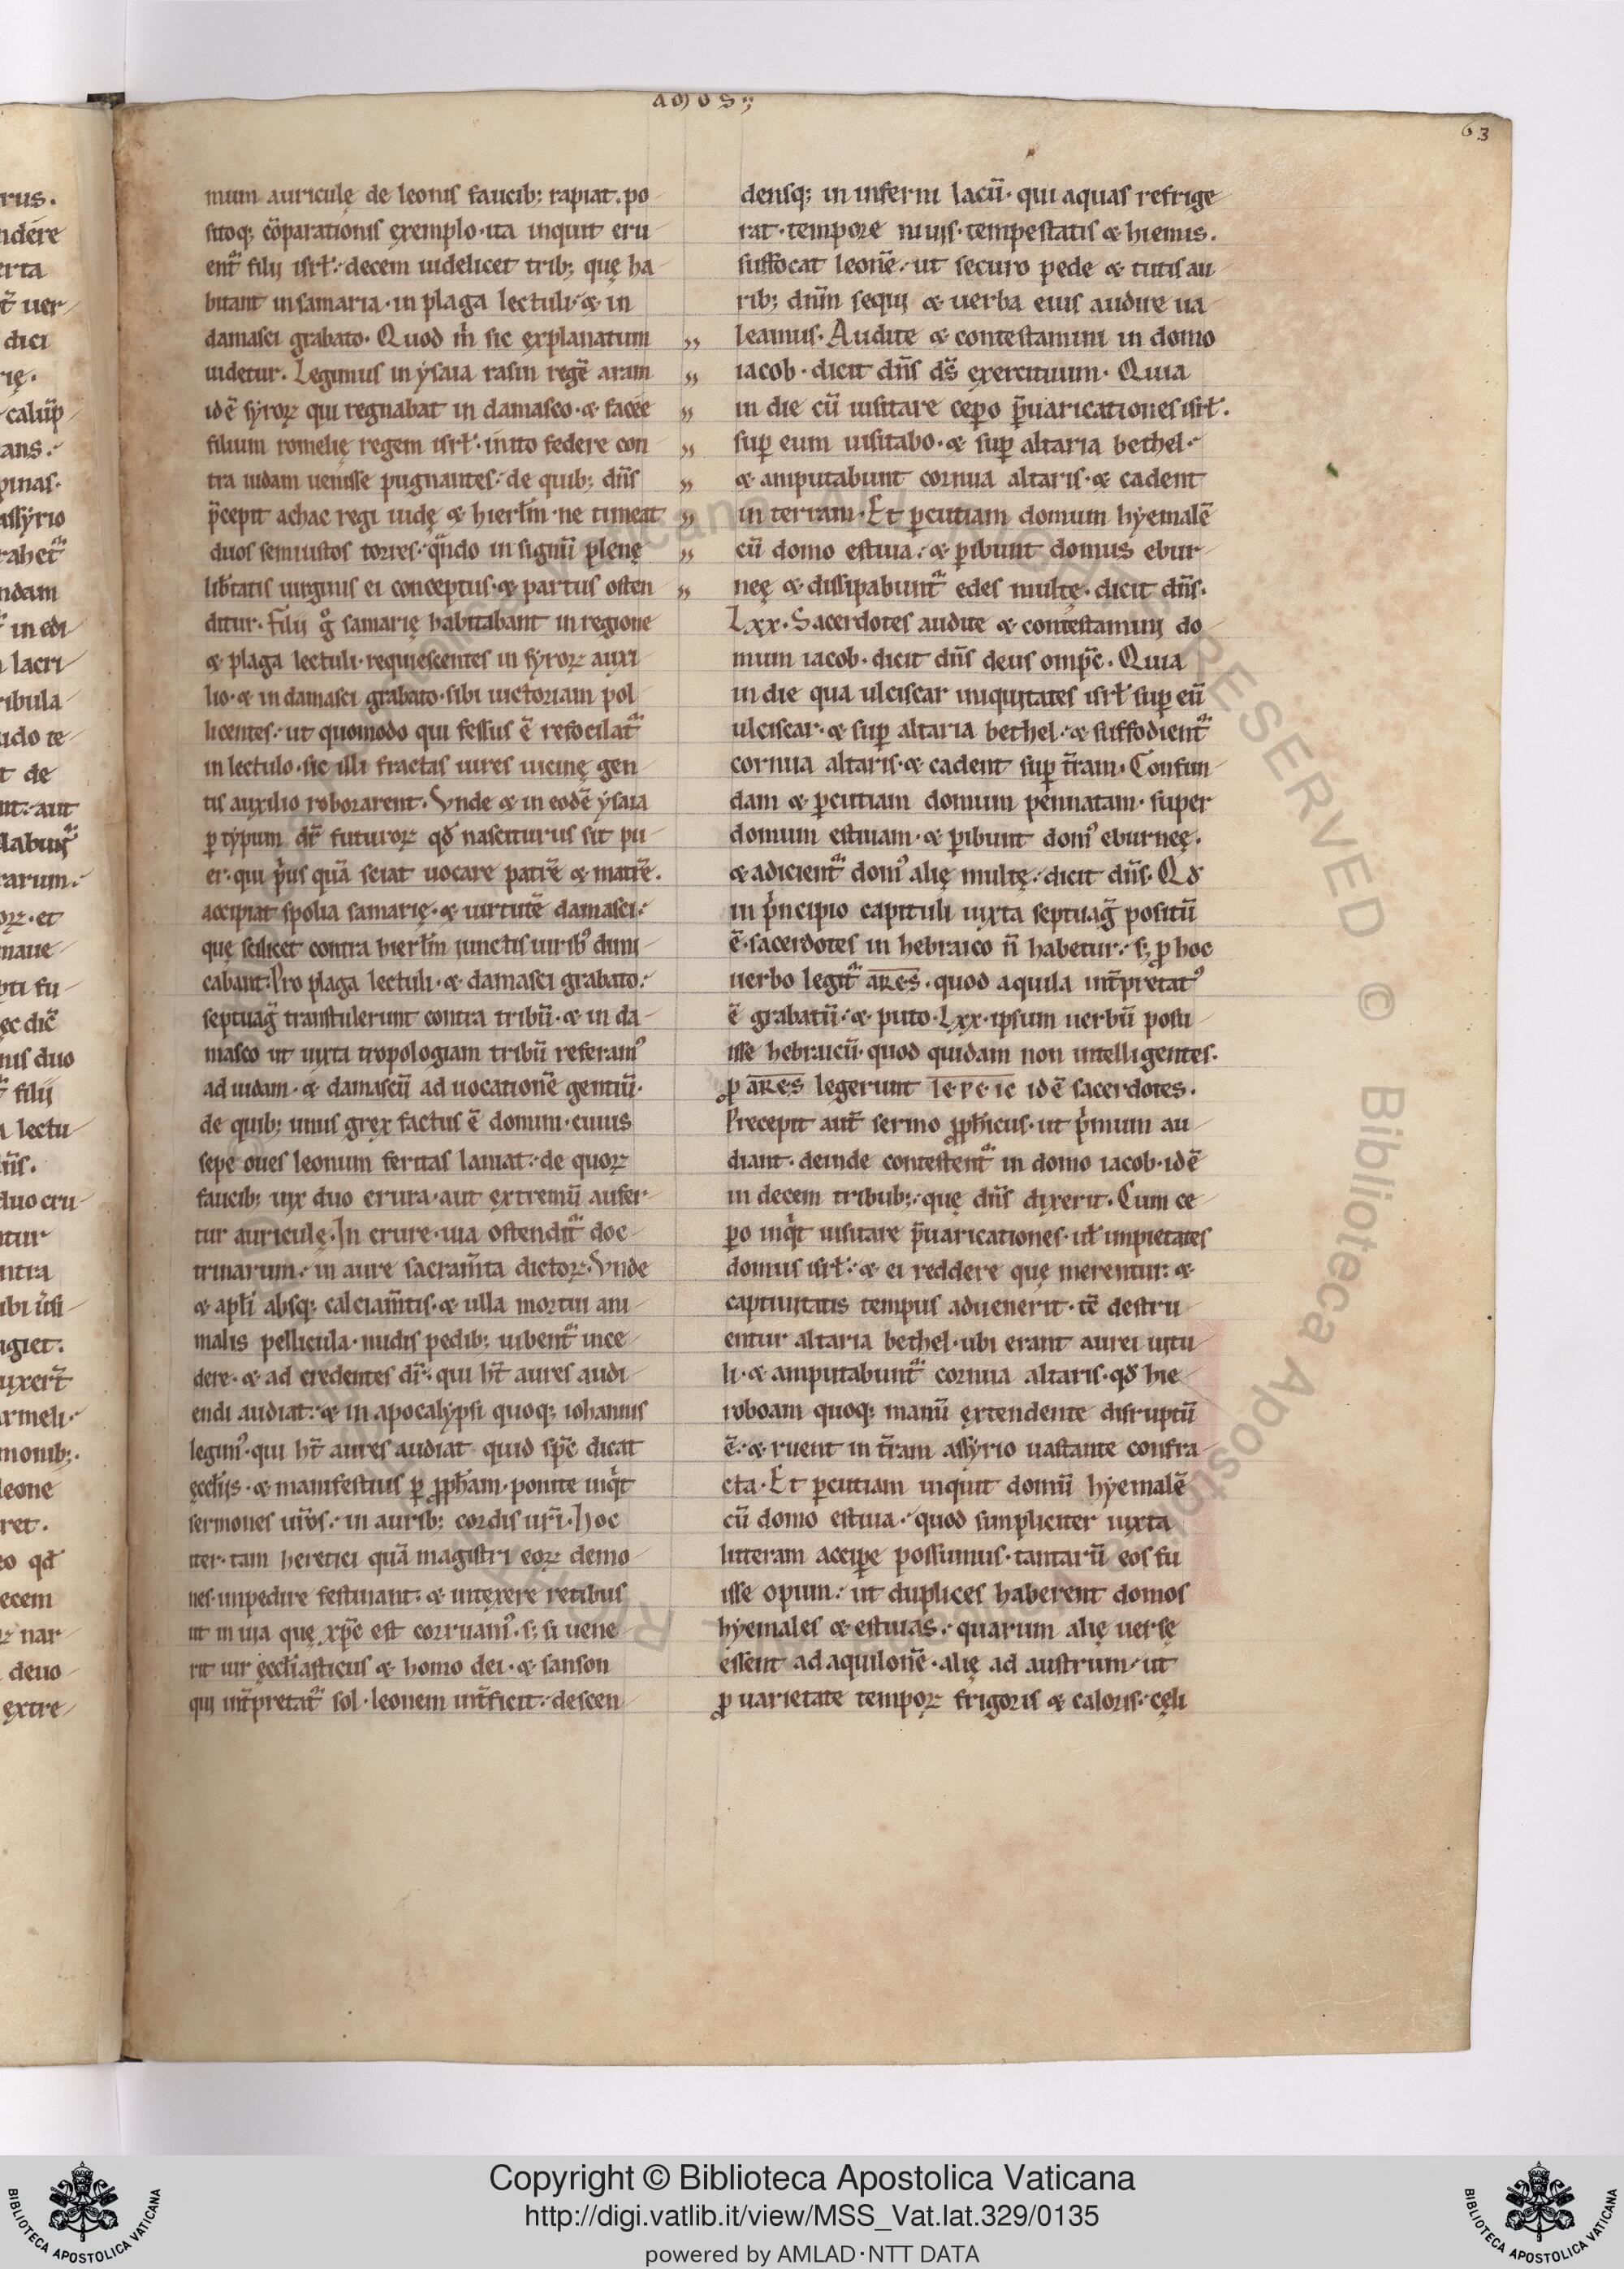 AMOS;
63
mum auriculę de leonis faucib; rapiat. po
sitoq; cōparationis exemplo. ita inquit eru
ent᷑ filij isrƚ. decem uidelicet trib; quę ha
bitant in samaria. in plaga lectuli. & in
damasci grabato. Quod m̄ sic explanatum
uidetur. Legimus in ysaia rasin regē aram
idē syroꝝ qui regnabat in damasco. & facee
filium romelię regem isrƚ. inito federe con
tra iudam uenisse pugnantes. de quib; dn̄s
p̄cepit achac regi iudę & hierƚm. ne timeat
duos semiustos torres. qn̄do in signū plenę
lib̄tatis uirginis ei conceptus. & partus osten
ditur. Filij g̊ samarię habitabant in regione
& plaga lectuli. requiescentes in syroꝝ auxi
lio. & in damasci grabato. sibi uictoriam pol
licentes. ut quomodo qui fessus ē refocilat᷑
in lectulo. sic illi fractas uires uicinę gen
tis auxilio roborarent. Vnde & in eodē ysaia
ꝑ typum dr̄ futuroꝝ qđ nasciturus sit pu
er. qui p̓us quā sciat uocare patrē & matrē.
accipiat spolia samarię. & uirtutē damasci.
quę scilicet contra hierƚm iunctis uirib᷒ dimi
cabant. Pro plaga lectuli. & damasci grabato.
septuag̃ transtulerunt contra tribū. & in da
masco ut iuxta tropologiam tribū referam᷒
ad iudam. & damascū ad uocationē gentiū.
de quib; unus grex factus ē domini. cuius
sepe oues leonum feritas laniat. de quoꝝ
faucib; uix duo crura. aut extremū aufer
tur auriculę. In crure. uia ostendit᷑ doc
trinarum. in aure sacram̄ta dictoꝝ. Vnde
& apƚi absq; calciam̄tis. & ulla mortui ani
malis pellicula. nudis pedib; iubent᷑ ince
dere. & ad credentes dr̄. qui ht̄ aures audi
endi audiat. & in apocalypsi quoq; iohannis
legim᷒. qui ht̄ aures audiat quid sp̄c dicat
ęccƚijs. & manifestius ꝑ ꝓpħam. ponite inq̓t
sermones uir̄os. in aurib; cordis ur̄i. Hoc
iter. tam heretici quā magistri eoꝝ demo
nes. impedire festinant. & intexere retibus
ut in uia quę xp̄c est corruam᷒. s; si uene
rit uir ęccƚiasticus & homo dei. & sanson
qui int̄pretat᷑ sol. leonem int̄ficit. descen
densq; in inferni lacū. qui aquas refrige
rat. tempore niuis. tempestatis & hiemis.
suffocat leonē. ut securo pede & tutis au
rib; dn̄m sequi & uerba eius audire ua
leamus. Audite & contestamini in domo
iacob. dicit dn̄s dš exercituum. Quia
in die cū uisitare cepero p̄uaricationes isrƚ.
suꝑ eum uisitabo. & suꝑ altaria bethel.
& amputabunt cornua altaris. & cadent
in terram. Et ꝑcutiam domum hyemalē
cū domo estiua. & ꝑibunt domus ebur
neę & dissipabunt᷑ edes multę. dicit dn̄s.
Lxx. Sacerdotes audite & contestamini do
mum iacob. dicit dn̄s deus omp̄c. Quia
in die qua ulciscar iniquitates isrƚ suꝑ eū
ulciscar. & suꝑ altaria bethel. & suffodient᷑
cornua altaris. & cadent suꝑ t̄ram. Confun
dam & ꝑcutiam domum pennatam. super
domum estiuam. & ꝑibunt dom᷒ eburneę.
& adicient᷑ dom᷒ alię multę. dicit dn̄s. Qđ
in p̓ncipio capituli iuxta septuag̃ positū
ē. sacerdotes in hebraico n̄ habetur. s; ꝓ hoc
uerbo legit᷑ ares. quod aquila int̄pretat᷒
ē grabatū. & puto. Lxx. ipsum uerbū posu
isse hebraicū. quod quidam non intelligentes.
ꝓ ares legerunt iereic idē sacerdotes.
Precepit aut̄ sermo ꝓpħicus. ut p̓mum au
diant. deinde contestent᷑ in domo iacob. idē
in decem tribub;. quę dn̄s dixerit. Cum ce
ꝑo inq̓t uisitare p̄uaricationes. uƚ impietates
domus isrƚ. & ei reddere quę merentur. &
captiuitatis tempus aduenerit. tē destru
entur altaria bethel. ubi erant aurei uitu
li. & amputabunt᷑ cornua altaris. qđ hie
roboam quoq; manū extendente disruptū
ē. & ruent in t̄ram assyrio uastante confra
cta. Et ꝑcutiam inquit domū hyemalē
cū domo estiua. quod simpliciter iuxta
litteram acciꝑe possumus. tantarū eos fu
isse opum. ut duplices haberent domos
hyemales & estiuas. quarum alię uersę
essent ad aquilonē. alię ad austrum. ut
ꝓ uarietate tempoꝝ frigoris & caloris. cęli
Copyright © Biblioteca Apostolica Vaticana
http://digi.vatlib.it/view/MSS_Vat.lat.329/0135
powered by AMLAD·NTT DATA
BIBLIOTECA APOSTOLICA VATICANA
BIBLIOTECA APOSTOLICA VATICANA